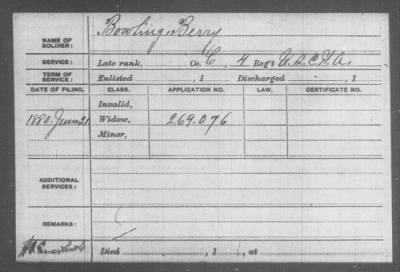 NAME OF SOLDIER: Bowling Berry
SERVICE: Late rank, Co. C, 4 Reg't U.S.C.H.A.
TERM OF SERVICE: Enlisted , 1 Discharged , 1
DATE OF FILING. CLASS. APPLICATION NO. LAW. CERTIFICATE NO.
Invalid,
1880. June 21 Widow, 269.076
Minor,
ADDITIONAL SERVICES:
REMARKS:
Died , 1 , at